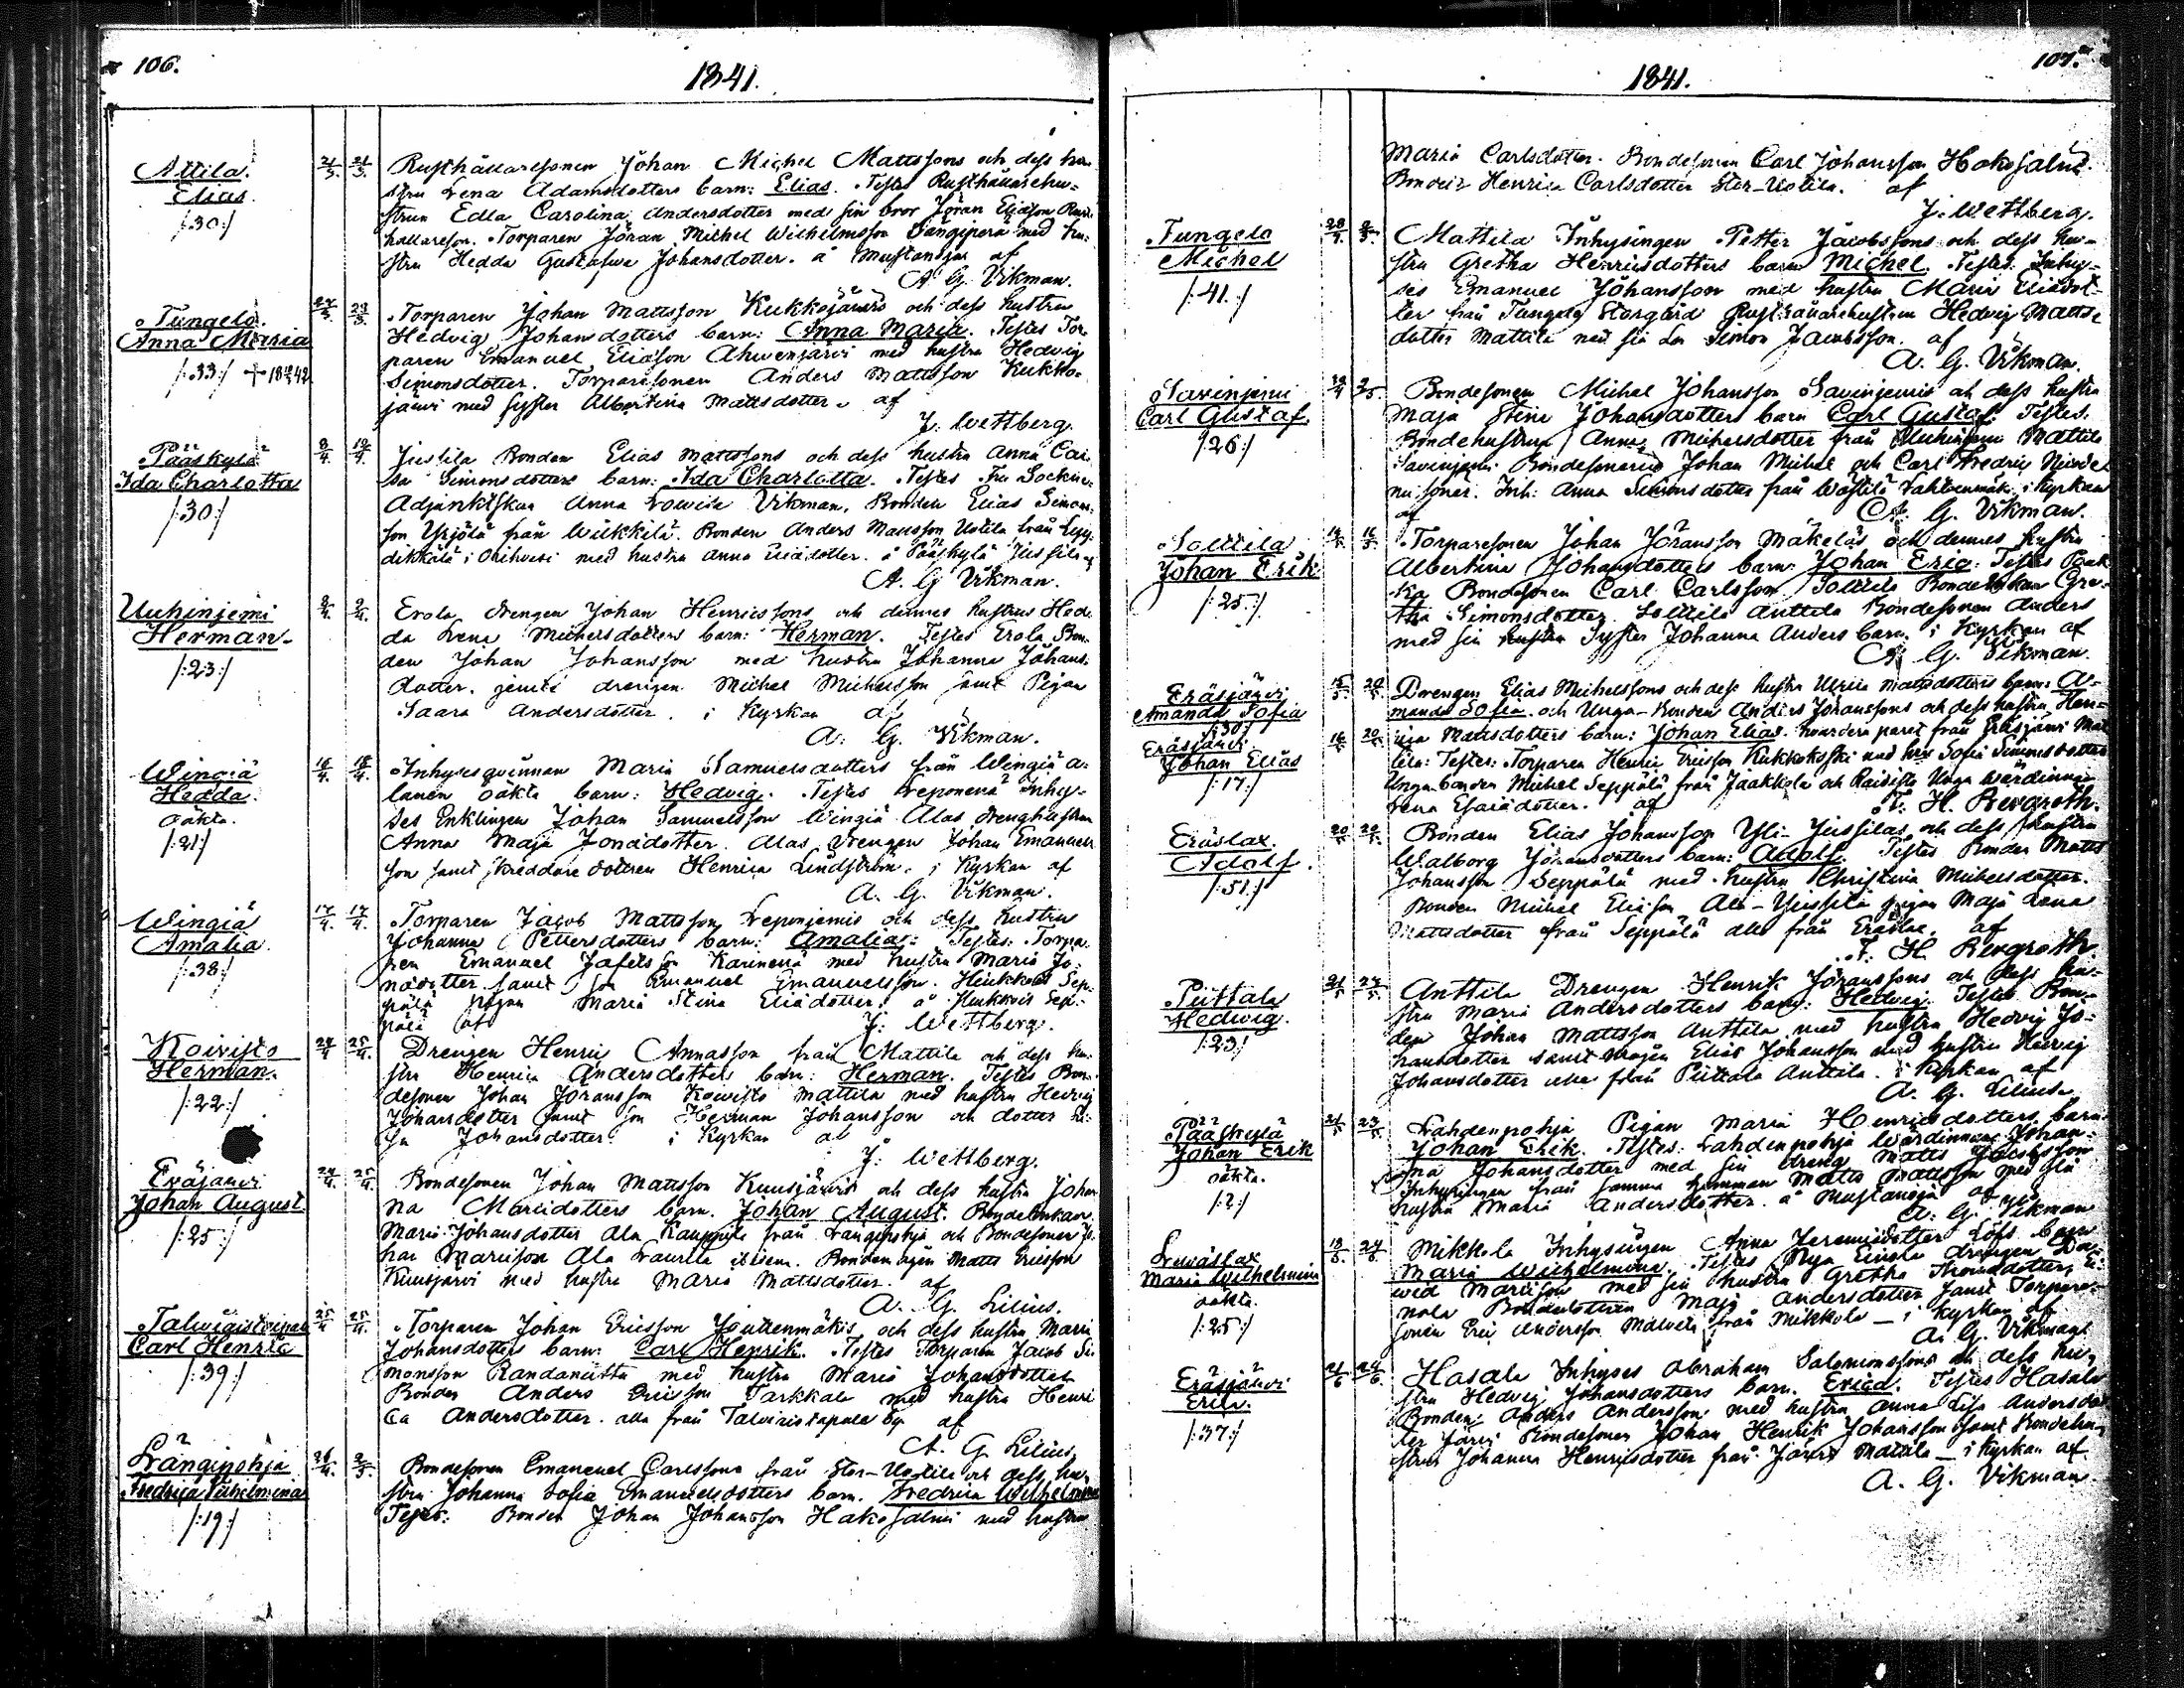 106.
1841.
Attila.
Elias.
/:30:/
21/3. 21/3.
Rusthållaresonen Johan Michel Mattssons och dess hu-
stru Lena Adamsdotters barn: Elias. Testes Rusthållarehu-
strun Edla Carolina Andersdotter med sin bror Jöran Eliasson Rust-
hållareson. Torparen Jöran Michel Wilhelmsson Långiperä med hu-
stru Hedda Gustafwa Johansdotter. å Mustanoja af
A. G. Vikman.
Tungelo.
Anna Maria
/:33:/
Torparen Johan Mattsson Kukkojärwis och dess hustru
Hedvig Johansdotters barn: Anna Maria. Testes Tor-
paren Emanuel Eliasson Ahwenjärvi med hustru Hedvig
Simonsdotter. Torparesonen Anders Mattsson Kukko-
järwi med syster Albertina Mattsdotter. af
J. Wettberg.
Pääskylä
Ida Charlotta
/:30:/
Jussila Bonden Elias Mattssons och dess hustru Anna Cai-
sa Simonsdotters barn: Ida Charlotta. Testes Fru Sockne-
Adjunktskan Anna Lowisa Vikman. Bonden Elias Simons-
son Yrjölä från Wükkilä. Bonden Anders Mattsson Uotila från
i Orihvesi med hustru Anna Eliädotter. å Pääskylä Jussila af
A. G Vikman.
Uuhinjemi
Herman.
/:23:/
Erola drengen Johan Henricssons och dennes hustrus Hed-
da Lena Michelsdotters barn: Herman. Testes Erola Bon-
den Johan Johansson med hustru Johanna Johans-
dotter. drengen Michel Michelsson samt Pigan
Saara Andersdotter. i Kyrkan af
A. G. Vikman.
Wingiä
Hedda.
oäkta.
/:21:/
Inhysesqvinnan Maria Samuelsdotters från Wingiä a-
lanen oäkta barn: Hedvig. Testes Leponenä Inhy-
ses Enklingen Johan Samuelsson Wingiä Alas drenghustrun
Anna Maja Jonädotter. Alas drengen Johan Emanuels-
son samt skreddare dottren Henrica Lindström. i Kyrkan af
A. G. Vikman.
Wingiä
Amalia.
/:38:/
17/4. 17/4.
Torparen Jacob Mattsson Leponjemis och dess hustru
Johanna Pettersdotters barn: Amalia: Testes: Torpa-
ren Emanuel Jafetsson Karinenä med hustru Maria Jo-
nädotter samt son Emanuel Emanuelsson. Heikkois Sep-
pälä pigan Maria Stina Eliädotter. å Heikkois Sep-
pälä af J. Wettberg.
Koivisto
Herman.
/:22:/
24/4 25/4.
Drengen Henric Annasson från Mattila och dess hu-
stru Henrica Andersdotters barn: Herman. Testes Bon-
desonen Johan Johansson Koivisto Mattila med hustru Hedvig
Johansdotter samt son Herman Johansson och dotter
Johansdotter. i Kyrkan af
J. Wettberg.
Eräjärvi
Johan August
/:25:/
24/4. 25/4.
Bondesonen Johan Mattsson Kuusjärvis och dess hustru Johan-
na Mariädotters barn. Johan August. Bondeenkan
Maria Johansdotter Ala Kauppila från Längipohja och Bondesonen Jo-
han Mattsson Ala Laurila ibidem. Bondemågen Matts Ericsson
Kuusjärvi med hustru Maria Mattsdotter. af
A. G. Lilius.
Talviaistaipale
Carl Henric
/:39:/
25/4 25/4.
Torparen Johan Ericsson Joutenmäkis och dess hustru Maria
Johansdotters barn: Carl Henrik. Testes Torparen Jacob Si-
monsson Randaniitta med hustru Maria Johansdotter
Bonden Anders Ericsson Tarkkala med hustru Henri-
ca Andersdotter. alla från Talviaistapale by af
A. G. Lilius.
Långipohja
Fredrica Wilhelmina
/:19:/
Bondesonen Emanuel Carlssons från Stor-Uotila och dess hu-
stru Johanna Sofia Emanuelsdotters barn. Fredrica Wilhelmina
Testes: Bonden Johan Johansson Hakosalmi med hustru
107.
1841.
Maria Carlsdotter. Bondesonen Carl Johansson Hakosalmi.
Henrica Carlsdotter Stor-Uotila. af
J. Wettberg.
Tungelo
Michel
/:41:/
Mattila Inhysingen Petter Jacobssons och dess hu-
stru Gretha Henricsdotters barn: Michel. Testes: Inhy-
ses Emanuel Johansson med hustru Maria Eliädot-
ter från Tungelo Storgård Rusthållarehustrun Hedvig Matts-
dotter Mattila med sin son Simon Jacobsson. af
A. G. Vikman.
Savinjemi
Carl Gustaf.
/:26:/
Bondesonen Michel Johansson Savinjemis och dess hustru
Maja Stina Johansdotters barn Carl Gustaf. Testes.
Bondehustrun Anna Michelsdotter från Uuhinjemi Mattila
Savinjemi Bondesonerne Johan Michel och Carl Fredric
söner. Inh: Anna Simonsdotter från i Kyrkan
af A. G. Vikman.
Solttila
Johan Erik
/:25:/
Torparesonen Johan Jöransson Mäkeläs och dennes hustru
Albertina Johansdotters barn: Johan Eric: Testes
Bondesonen Carl Carlsson Solttila Bondeenkan Gre-
tha Simonsdotter. Solttila Anttila Bondesonen Anders
med sin hustru syster Johanna Anders barn. i Kyrkan af
A. G. Vikman.
Eräsjärvi
Amanda Sofia
/:30:/
Eräsjärvi
Johan Elias
/:17:/
Drengen Elias Michelssons och dess hustru Ulrica Mattsdotters barn: A-
manda Sofia. och Unga-Bonden Anders Johanssons och dess hustru Hen-
rica Mattsdotters barn: Johan Elias. hvardera paret från Eräsjärvi Mat-
tila: Testes: Torparen Henric Ericsson Kukkokoski med hust Sofia Simonsdotter
Unga-bonden Michel Seppälä från Jaakkola och Raidisto Unga Värdinnan
Lena Esaiädotter. af F. H. Bergroth.
Eräslax.
Adolf.
/:51:/
20/5. 20/5.
Bonden Elias Johansson Yli-Jussilas och dess hustru
Walborg Johansdotters barn: Adolf. Testes Bonden Matts
Johansson Seppälä med hustru Christina Michelsdotter.
Bonden Michel Eliasson Ala-Jussila pigan Maja Lena
Mattsdotter från Seppälä alla från Eräslax. af
F. H. Bergroth.
Püttala
Hedwig.
/:23:/
Anttila Drengen Henrik Jöranssons och dess hu-
stru Maria Andersdotters barn: Hedvig. Testes Bon-
den Johan Mattsson Anttila med hustru Hedvig Jo-
hansdotter samt mågen Elias Johansson med hustru Hedvig
Johansdotter alla från Püttala Anttila. i Kyrkan af
A. G. Lilius.
Pääskylä
Johan Erik
oäkta.
/:2:/
Lahdenpohja Pigan Maria Henricsdotters barn
Johan Erik. Testes: Lahdenpohja Wärdinnan Johan-
na Johansdotter med sin dreng Matts Jacobsson
Inhysingen från samma hemman Matts Mattsson med sin
hustru Maria Andersdotter. å Mustanoja af
A. G. Vikman
Maria Wilhelmina
oäkta.
/:25:/
Mikkola Inhysingen Anna Jeremiedotter Löfs barn
Maria Wilhelmina. Testes Eerola drengen Da-
wid Mattsson med sin hustru Gretha Thomsdotter,
Bondedottren Maja Andersdotter samt Torpare-
sonen Eric Andersson från Mikkola — i Kyrkan af
A. G. Vikman.
Eräsjärvi
Erica.
/:37:/
Hasala Inhyses Abraham Salomonssons och dess hu-
stru Hedvig Johansdotters barn. Erica. Testes Hasala
Bonden Anders Andersson med hustru Anna Lisa Andersdot-
ter Järvi Bondesonen Johan Henrik Johansson samt Bondehu-
strun Johanna Henricsdotter från Järvi Mattila — i Kyrkan af
A. G. Vikman.